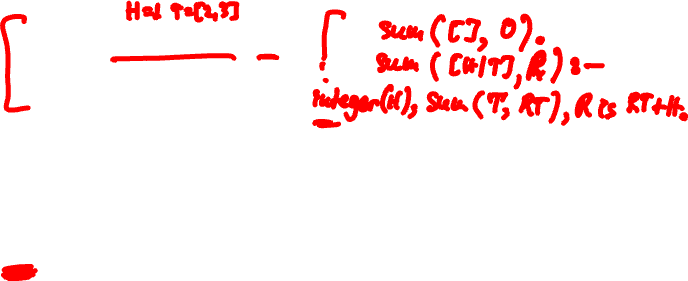 H=1 T=[2,3]
sum([], 0).
sum([H|T], R) :-
integer(H), sum(T, RT), R is RT+H.